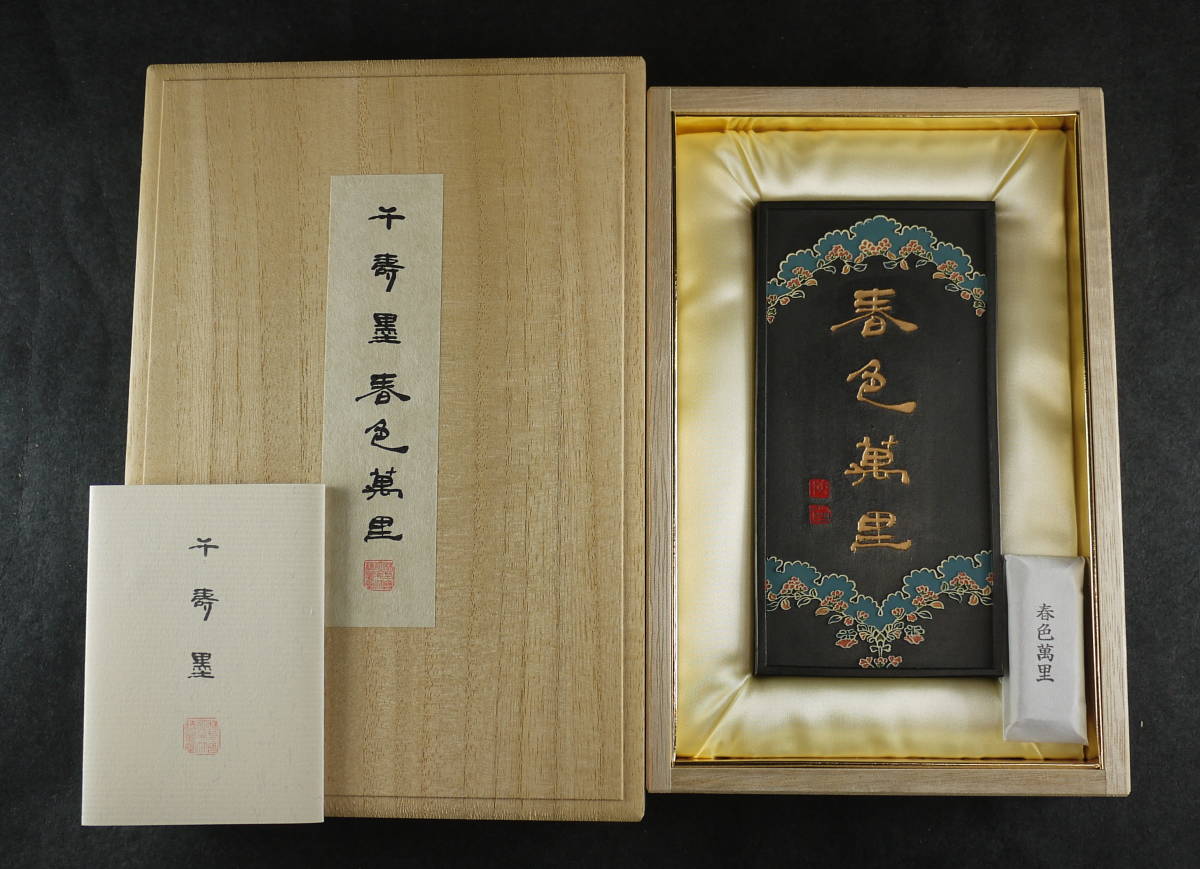 千壽墨春色萬里
千壽墨
春色萬里
春色萬里